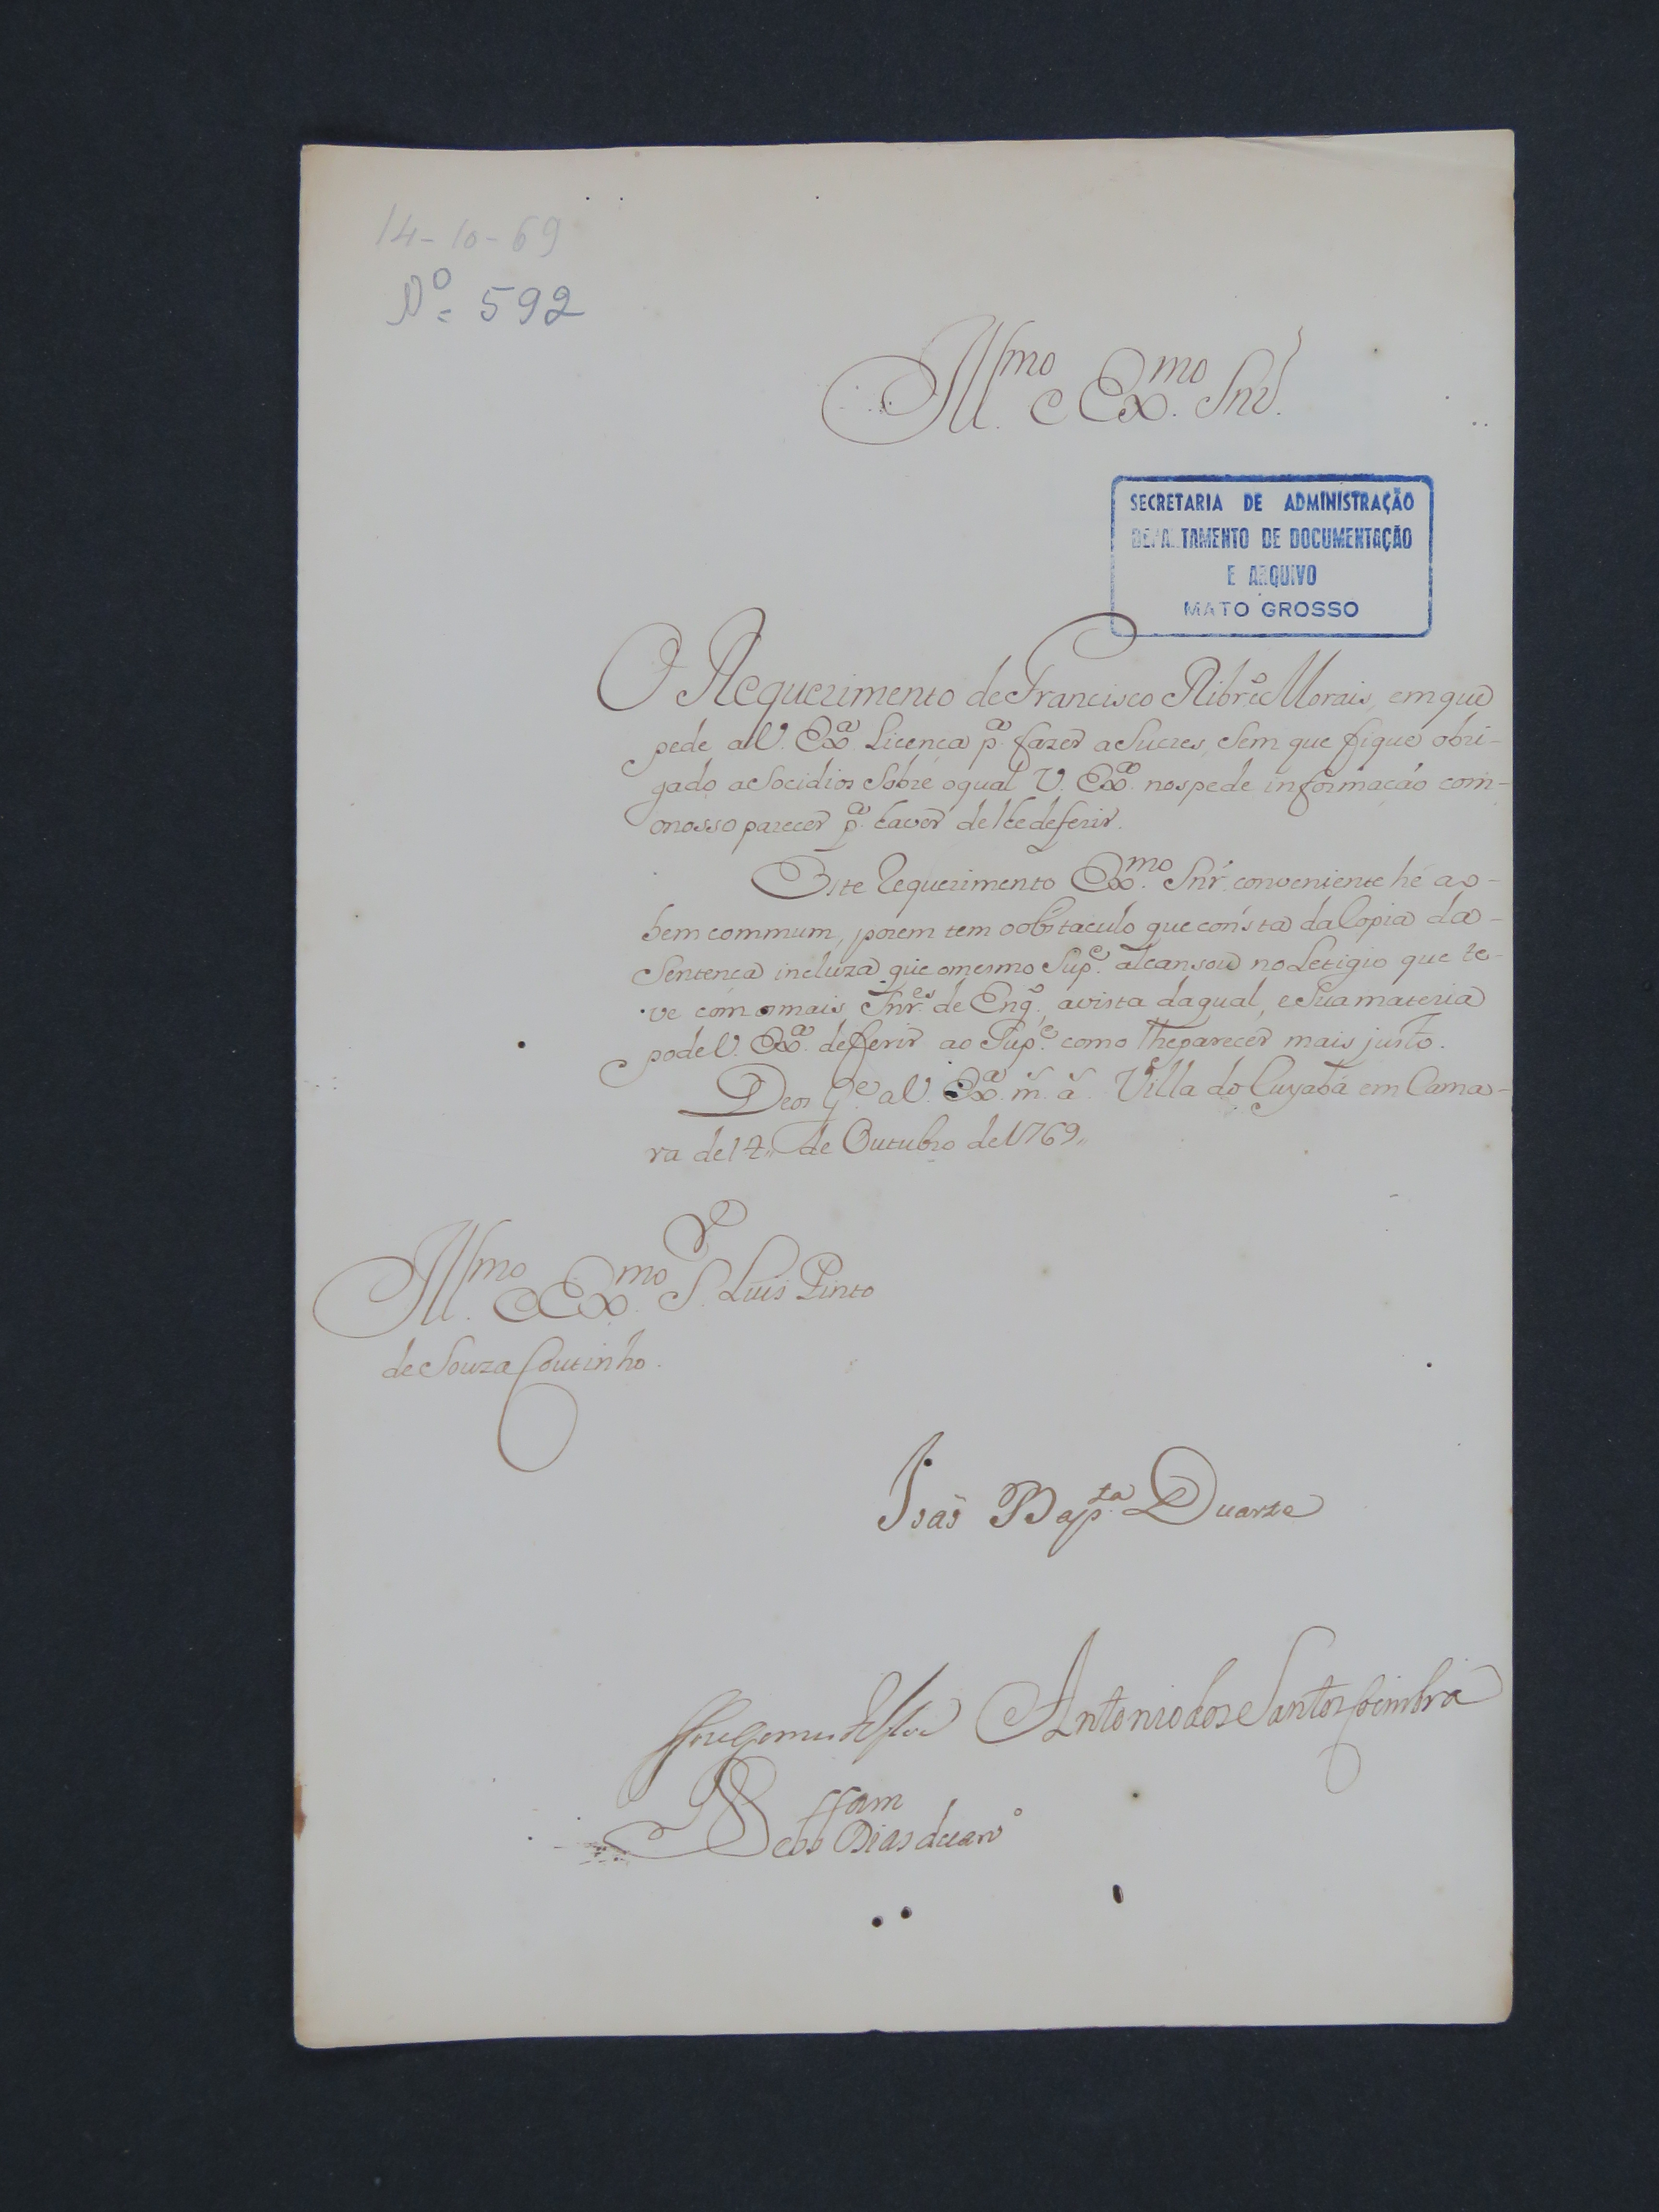 14-10-69
Nº 592
Ill.mo e Ex.mo Snr.
SECRETARIA DE ADMINISTRAÇÃO
DEPARTAMENTO DE DOCUMENTAÇÃO
E ARQUIVO
MATO GROSSO
O Requerimento de Francisco Ribr.o Morais, em que
pede a V. Ex.a Licença p.a fazer asucres, sem que fique obri-
gado a socidios sobre o qual V. Ex.a nos pede informação com
o nosso parecer p.a haver de lhe deferir.
Este requerimento Ex.mo Snr. conveniente hé ao
bem commum, porem tem o obstaculo que consta da Copia da
Sentença incluza que o mesmo Sup.e alcansou no Letigio que te-
ve com os mais Snr.es de Eng.o, a vista da qual, e sua materia
pode V. Ex.a defferir ao Sup.e como lhe parecer mais justo.
Deos g.e a V. Ex.a m. a. Villa do Cuyabá em Cama-
ra de 14 de Outubro de 1769
Ill.mo e Ex.mo S.r Luis Pinto
de Souza Coutinho.
João Bap.ta Duarte
Antonio dos Santos Coimbra
Dias